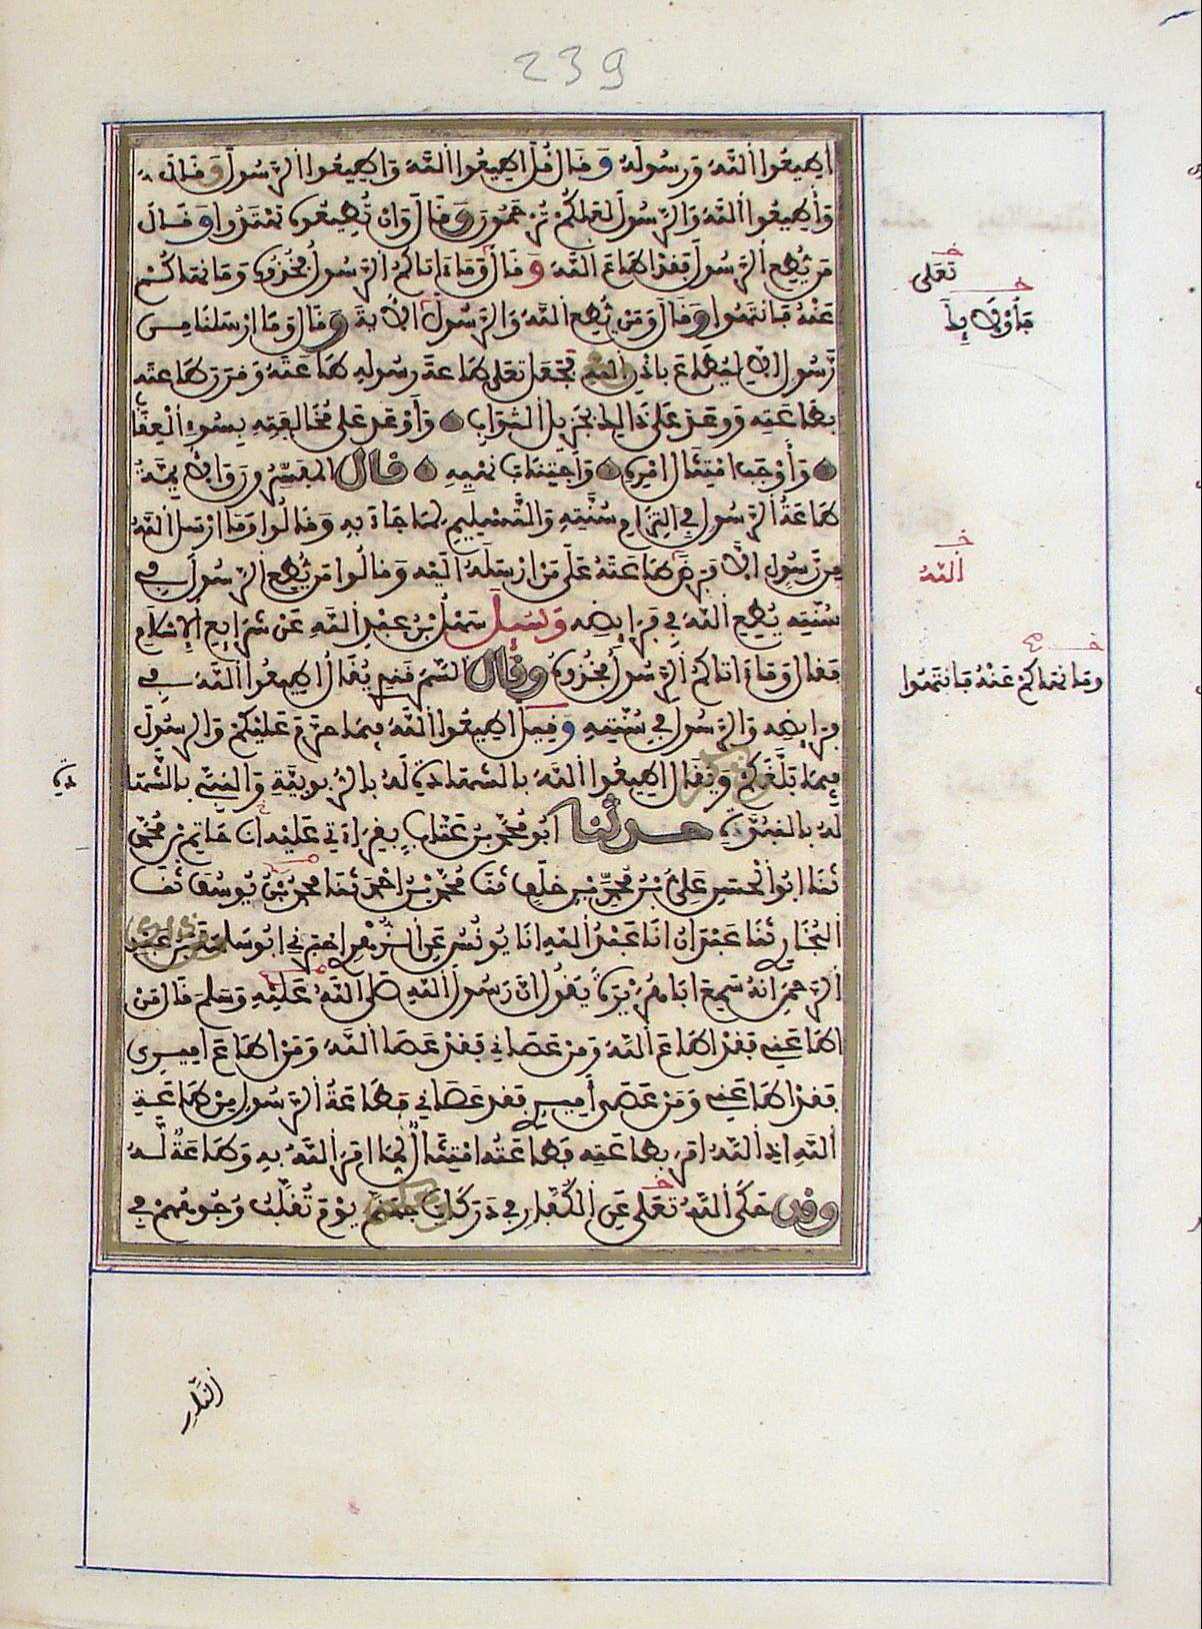 239
أطيعوا الله ورسوله وقال قل أطيعوا الله وأطيعوا الرسول وقال
وأطيعوا الله والرسول لعلكم ترحمون وقال وإن تطيعوه تهتدوا وقال
من يطع الرسول فقد أطاع الله وقال وما ءاتاكم الرسول فخذوه وما نهاكم
عنه فانتهوا وقال ومن يطع الله والرسول الآية وقال وما أرسلنا من
رسول إلا ليطاع بإذن الله فجعل تعلى طاعة رسوله طاعته وقرن طاعته
بطاعته ووعد على ذالك بجزيل الثواب وأوعد على مخالفته بسوء العقاب
وأوجب امتثال أمره واجتناب نهيه قال المفسرون والأيمة
طاعة الرسول في التزام سنته والتسليم لما جاء به وقالوا وما أرسل الله
من رسول إلا فرض طاعته على من أرسله إليه وقالوا من يطع الرسول في
سنته يطع الله في فرايضه وسيل سهل بن عبد الله عن شرايع الإسلام
فقال وما ءاتاكم الرسول فخذوه وقال السمرقندي يقال أطيعوا الله في
فرايضه والرسول في سنته وقيل أطيعوا الله فيما حرم عليكم والرسول
فيما بلغكم ويقال أطيعوا الله بالشهادة له بالربوبية والنبي بالشها
دة
له بالنبوة حدثنا أبو محمد بن عتاب بقراءتي عليه نا حاتم بن محمد
ثنا أبو الحسن علي بن محمد بن خلف ثنا محمد بن أحمد ثنا محمد بن يوسف ثنا
البخاري ثنا عبدان أنا عبد الله أنا يونس عن الزهري أخبرني أبو سلمة بن عبد
الرحمن أنه سمع أبا هريرة يقول إن رسول الله صلى الله عليه وسلم قال من
أطاعني فقد أطاع الله ومن عصاني فقد عصا الله ومن أطاع أميري
فقد أطاعني ومن عصى أميري فقد عصاني فطاعة الرسول من طاعة
الله إذ الله أمر بطاعته فطاعته امتثال لما أمر الله به وطاعة له
وقد حكى الله تعلى عن الكفار في دركات جهنم يوم تقلب وجوههم في
النار
خ
تعلى
خ
فأولئك
خ
الله
خ
وما نهاكم عنه فانتهوا